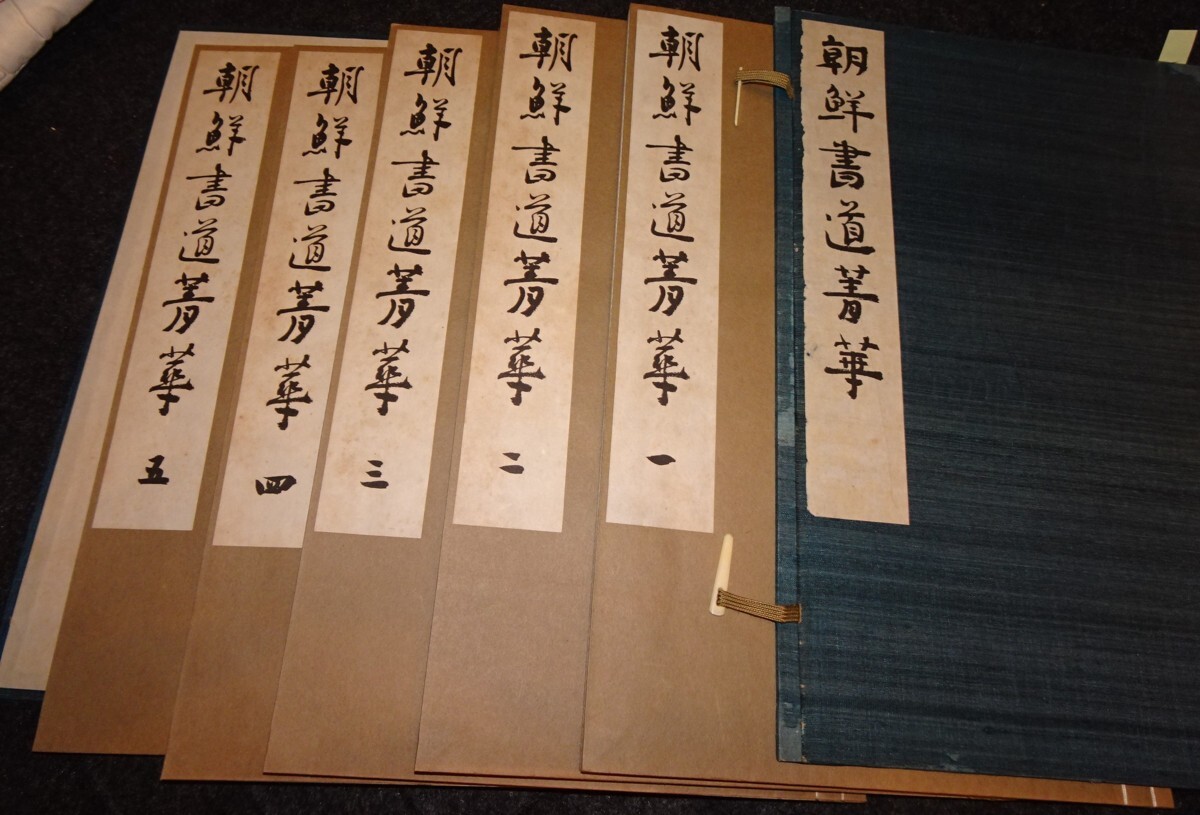 朝鮮書道菁華
朝鮮書道菁華 一
朝鮮書道菁華 二
朝鮮書道菁華 三
朝鮮書道菁華 四
朝鮮書道菁華 五